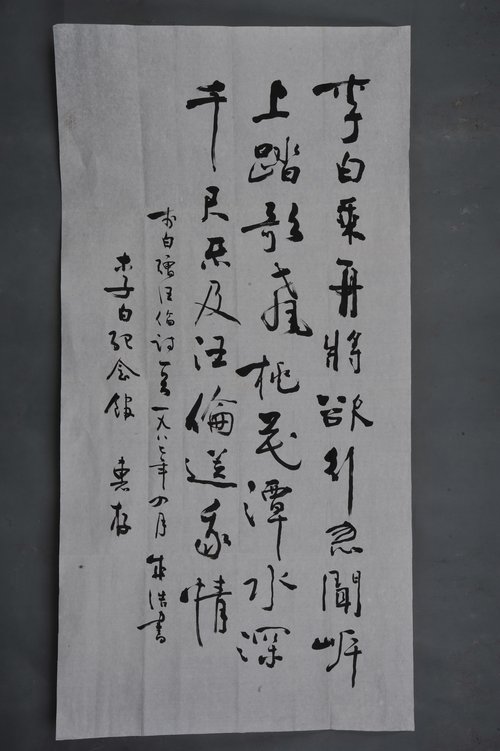 李白乘舟將欲行忽聞岸
上踏歌聲桃花潭水深
千尺不及汪倫送我情
李白贈汪倫詩一首 一九八七年四月 浩書
李白纪念馆 惠存